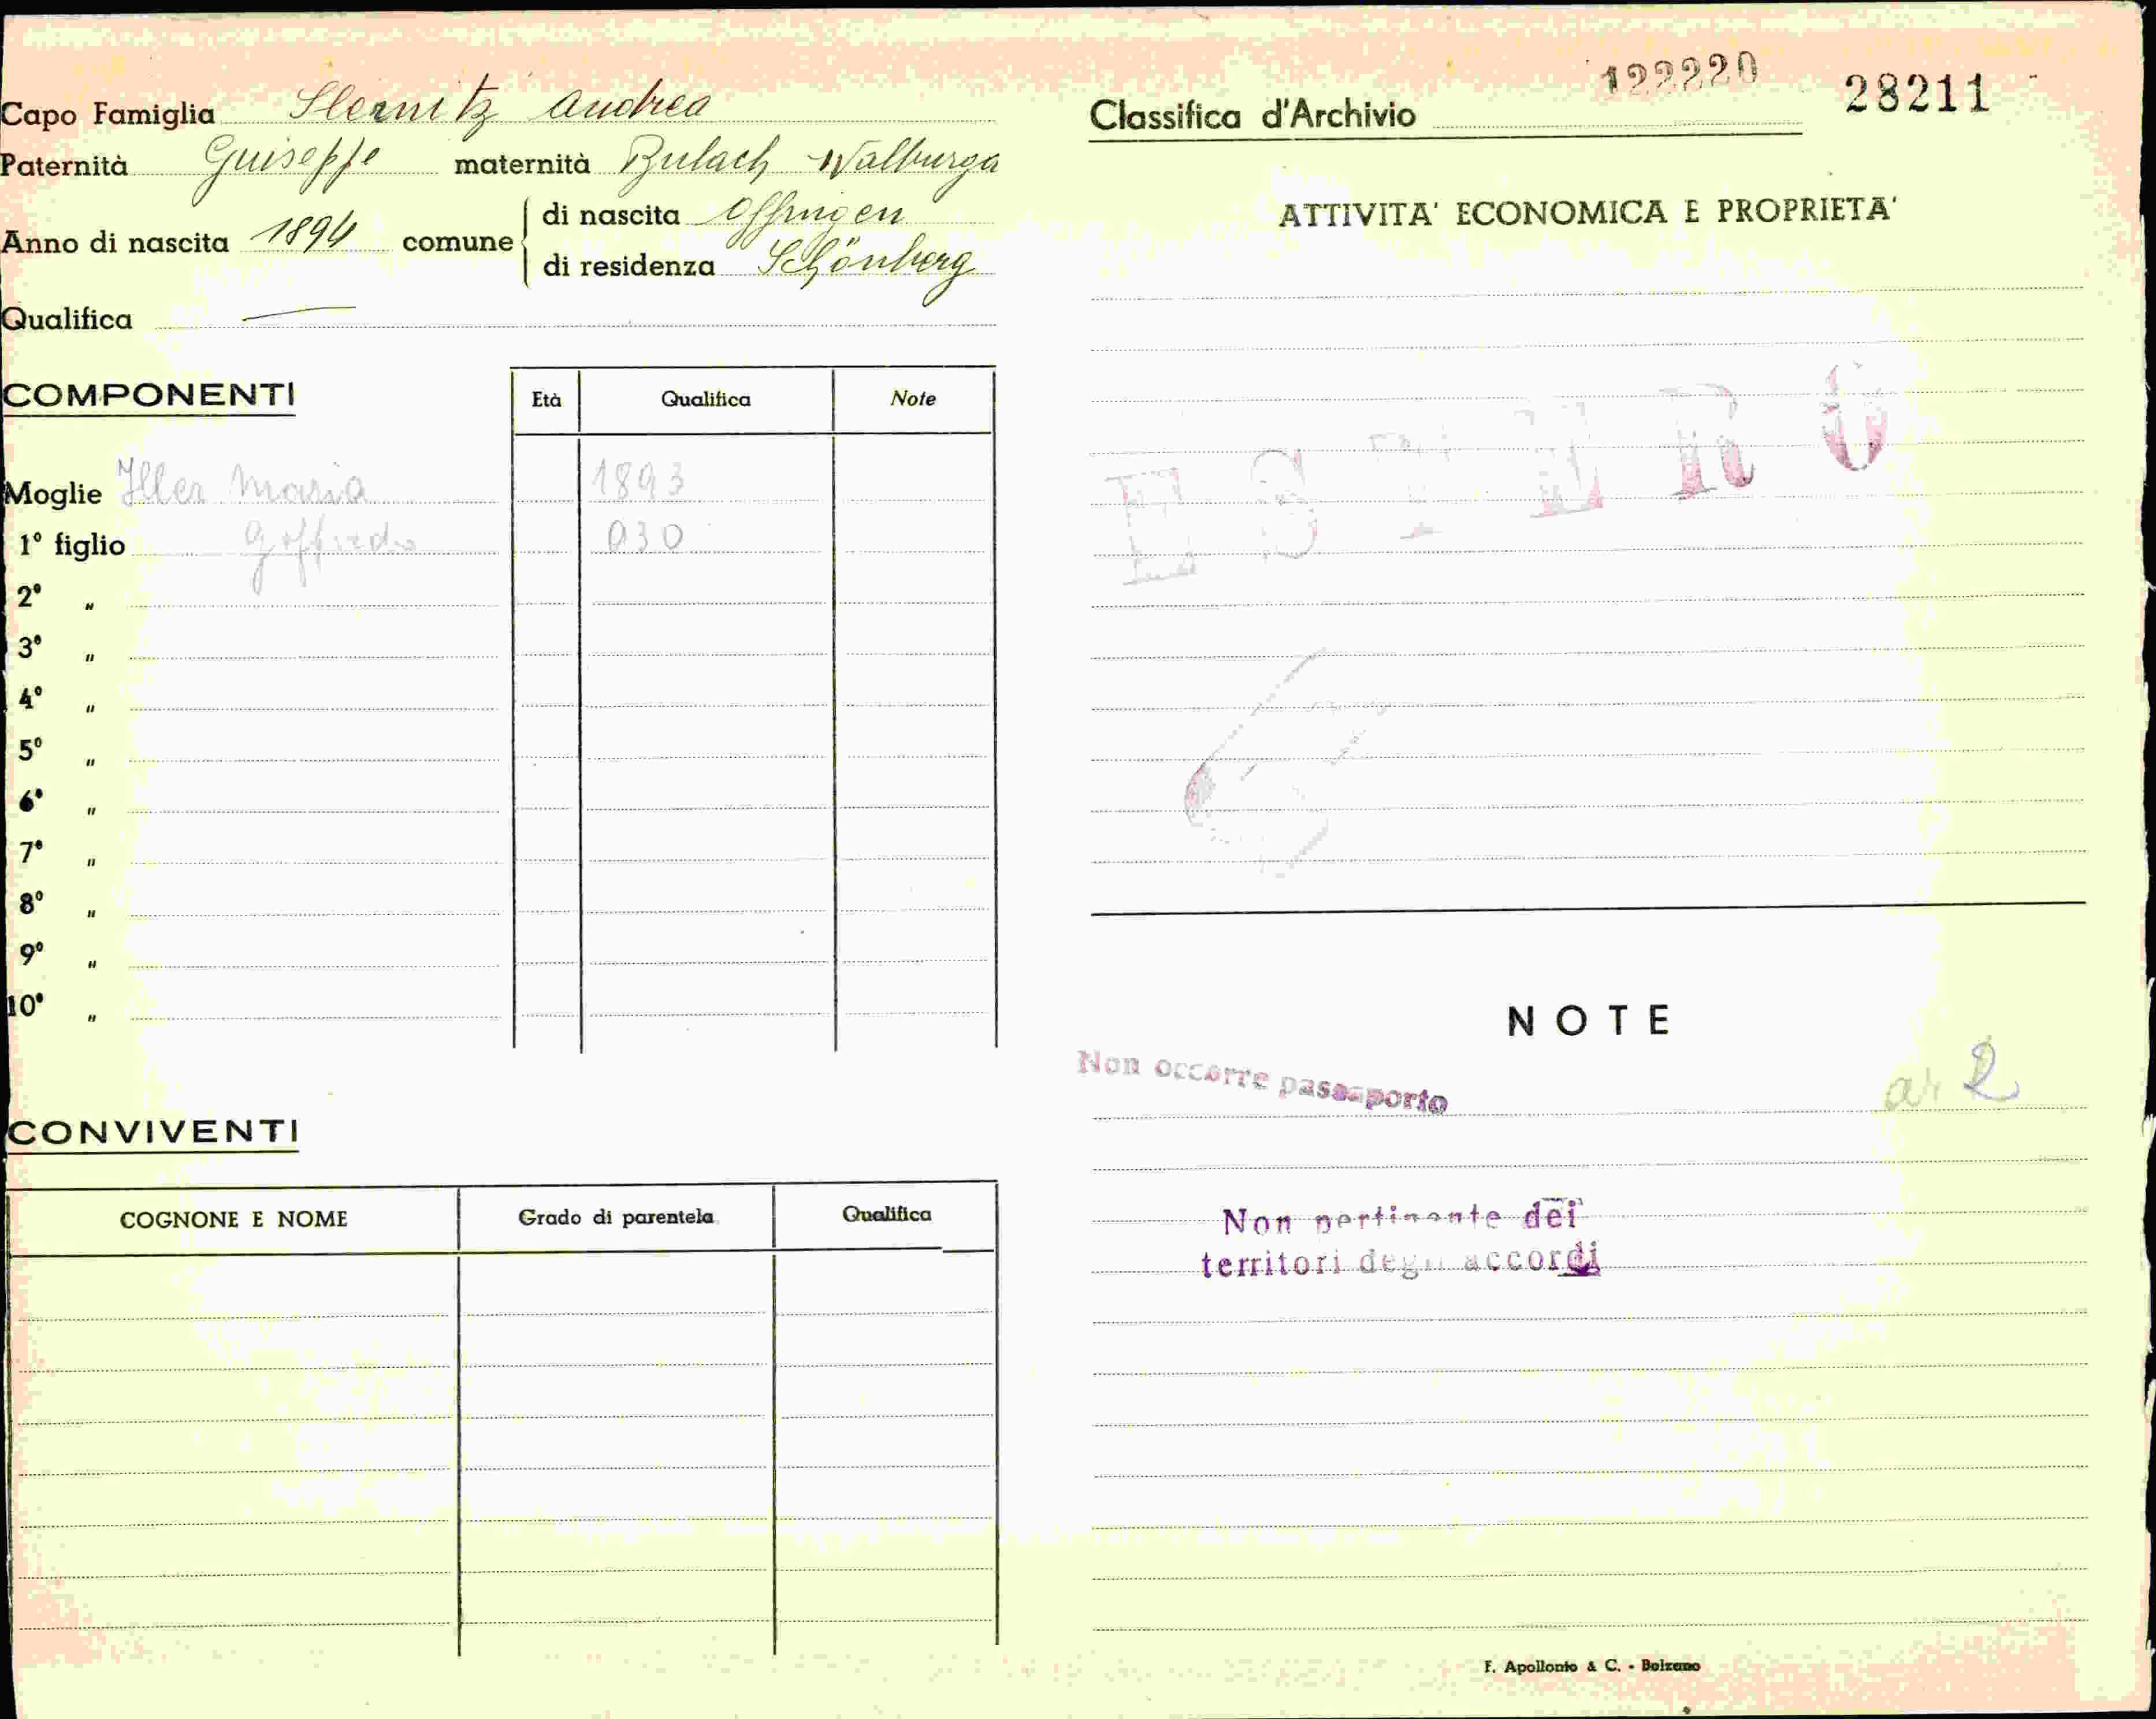 Capo Famiglia Sternitz Andrea
Paternità Guiseppe maternità Bulach Walburga
Anno di nascita 1894 comune di nascita Offingen
di residenza Schönberg
Qualifica —
COMPONENTI
Età Qualifica Note
Moglie Iller Maria 1893
1° figlio Goffredo 030
2° "
3° "
4° "
5° "
6° "
7° "
8° "
9° "
10° "
CONVIVENTI
COGNONE E NOME Grado di parentela Qualifica
Classifica d'Archivio 122220 28211
ATTIVITA' ECONOMICA E PROPRIETA'
ESTERO
NOTE
Non occorre passaporto
ar 2
Non pertinente dei
territori degli accordi
F. Apollonio & C. - Bolzano